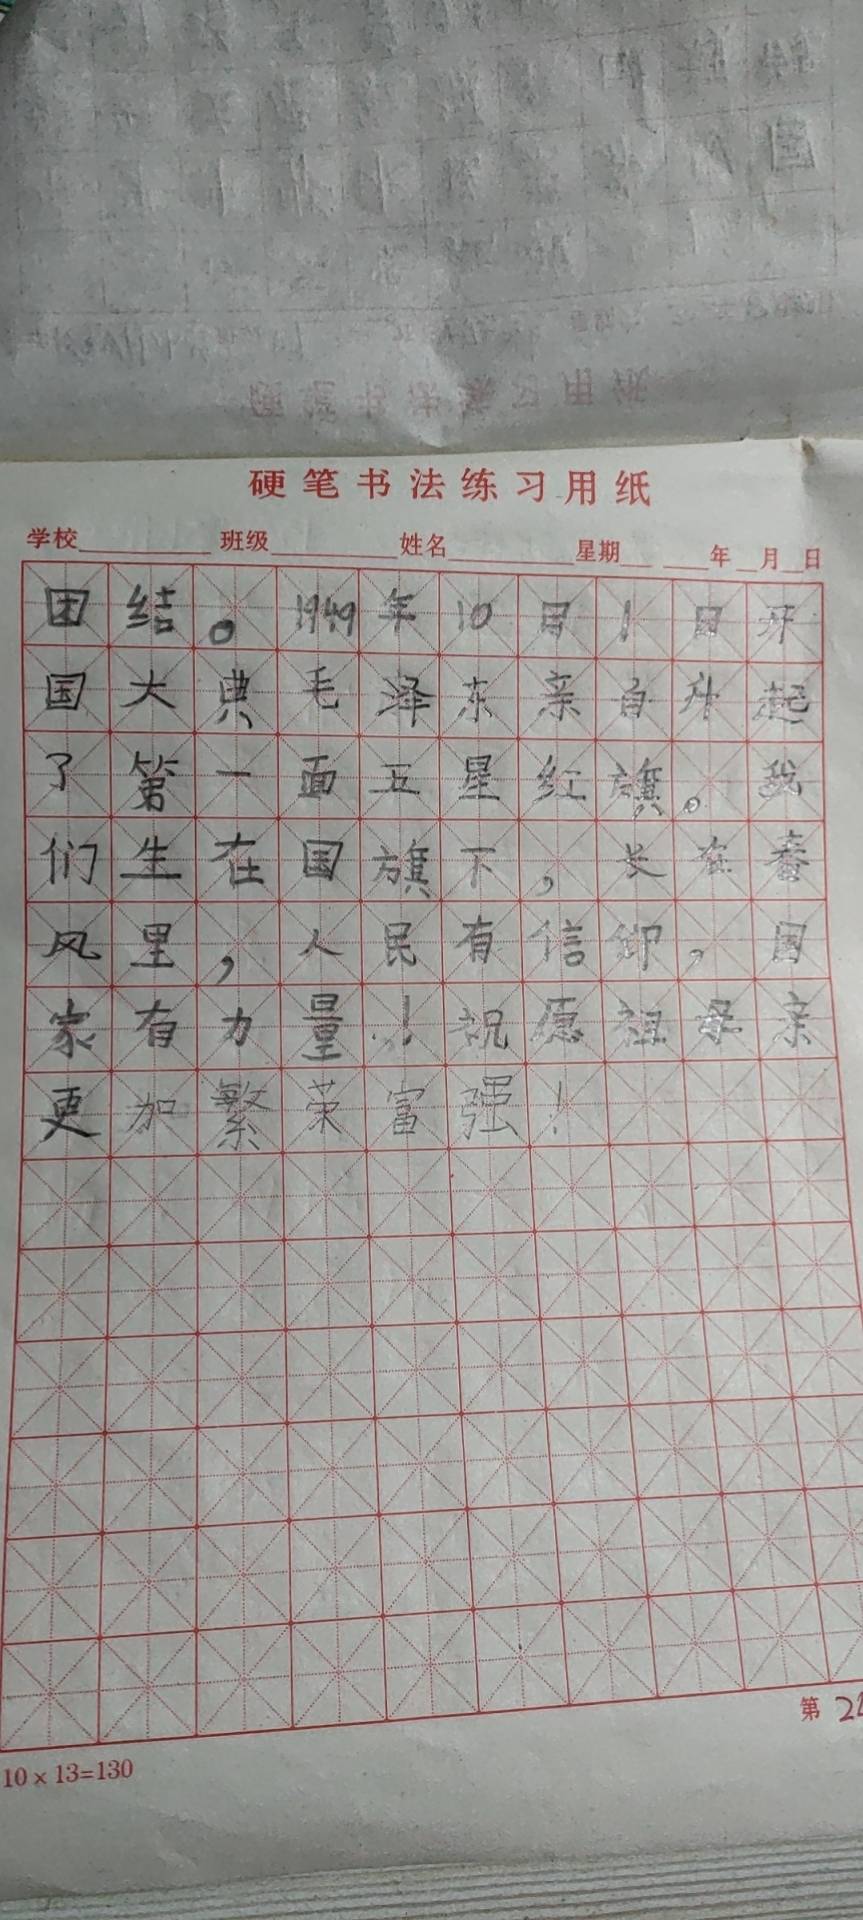 硬笔书法练习用纸
学校 班级 姓名 星期 年 月 日
团结。1949年10月1日开
国大典毛泽东亲自升起
了第一面五星红旗。我
们生在国旗下，长在春
风里，人民有信仰，国
家有力量！祝愿祖母亲
更加繁荣富强！
第
10×13=130